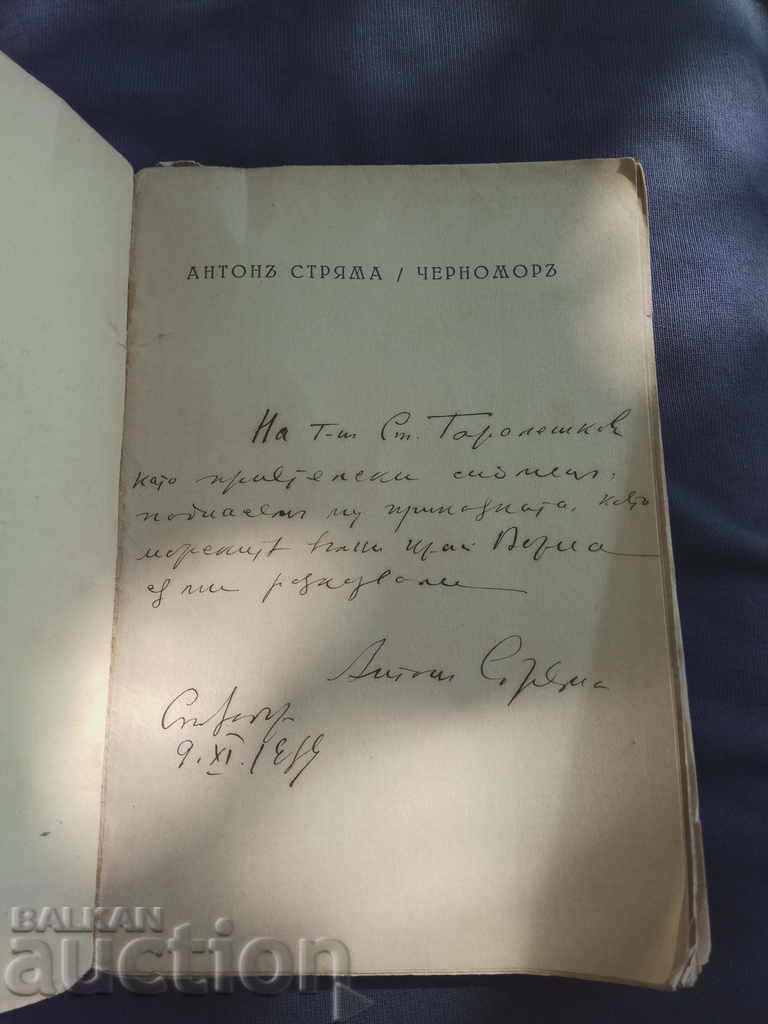 АНТОНЪ СТРЯМА / ЧЕРНОМОРЪ
На Т-нъ Ст. Таралешков
като приятелски спомен,
поднасямъ му приказката, която
морскитѣ вълни край Варна
са ми разказвали
Антонъ Стряма
9. XI. 1939
BALKAN
auction